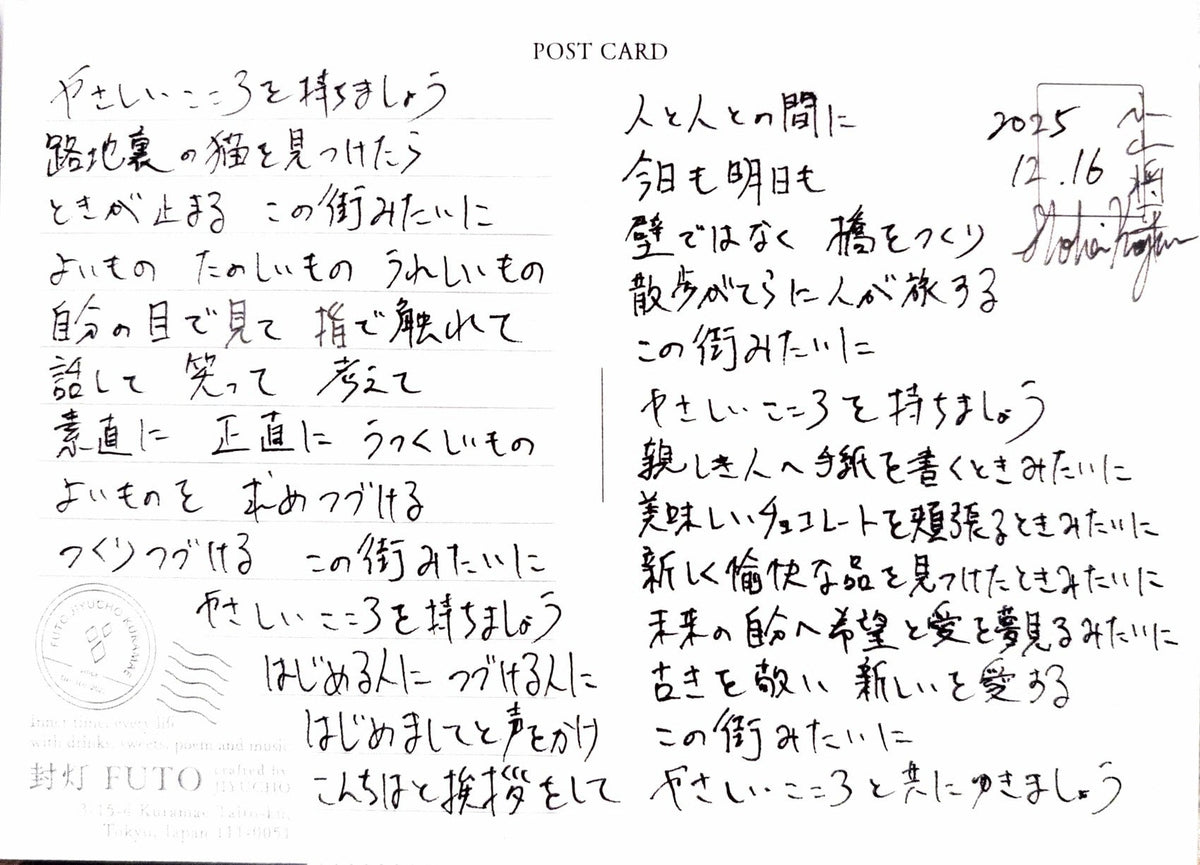 POST CARD
やさしいこころを持ちましょう
路地裏の猫を見つけたら
ときが止まる この街みたいに
よいもの たのしいもの うれしいもの
自分の目で見て 指で触れて
話して 笑って 考えて
素直に 正直に うつくしいもの
よいものを 求めつづける
つくりつづける この街みたいに
やさしいこころを持ちましょう
はじめる人に つづける人に
はじめましてと声をかけ
こんちはと挨拶をして
人と人との間に
今日も明日も
壁ではなく 橋をつくり
散歩がてらに人が旅する
この街みたいに
やさしいこころを持ちましょう
親しき人へ手紙を書くときみたいに
美味しいチョコレートを頬張るときみたいに
新しく愉快な品を見つけたときみたいに
未来の自分へ希望と愛を夢見るみたいに
古きを敬い 新しいを愛する
この街みたいに
やさしいこころと共にゆきましょう
2025
12.16
FUTO JIYUCHO KURAMAE
Inner time, every life
with drinks, sweets, poem and music
封灯 FUTO crafted by JIYUCHO
3-15-6 Kuramae Taito-ku,
Tokyo, Japan 111-0051